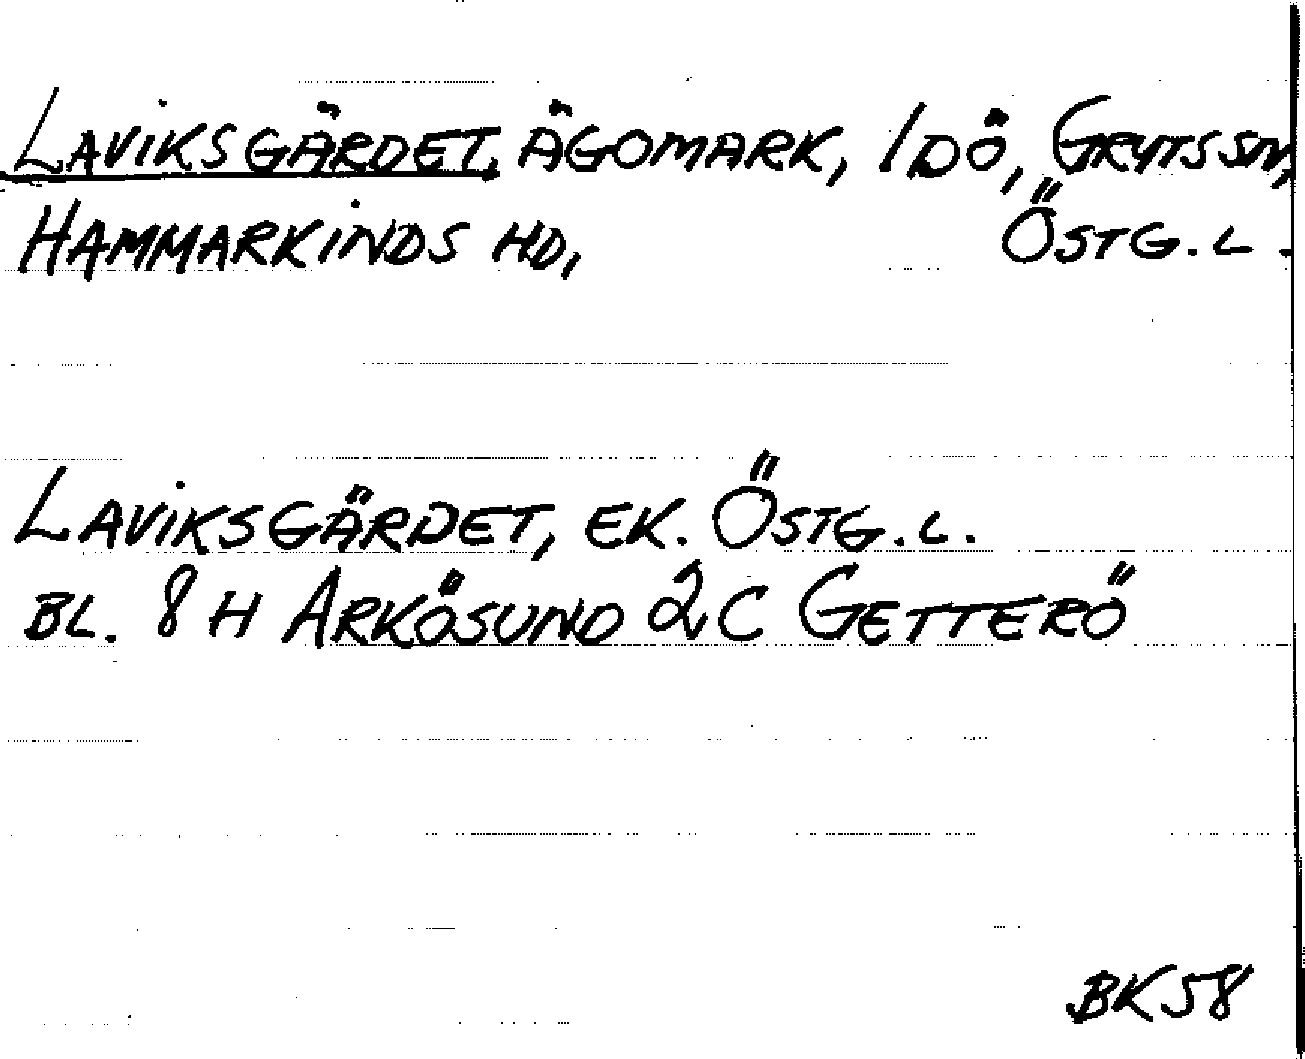 LAVIKSGÄRDET, ÄGOMARK, IDÖ, GRYTS SN,
HAMMARKINDS HD, ÖSTG. L.
LAVIKSGÄRDET, EK. ÖSTG. L.
BL. 8 H ARKÖSUND 2 C GETTERÖ
BK 58